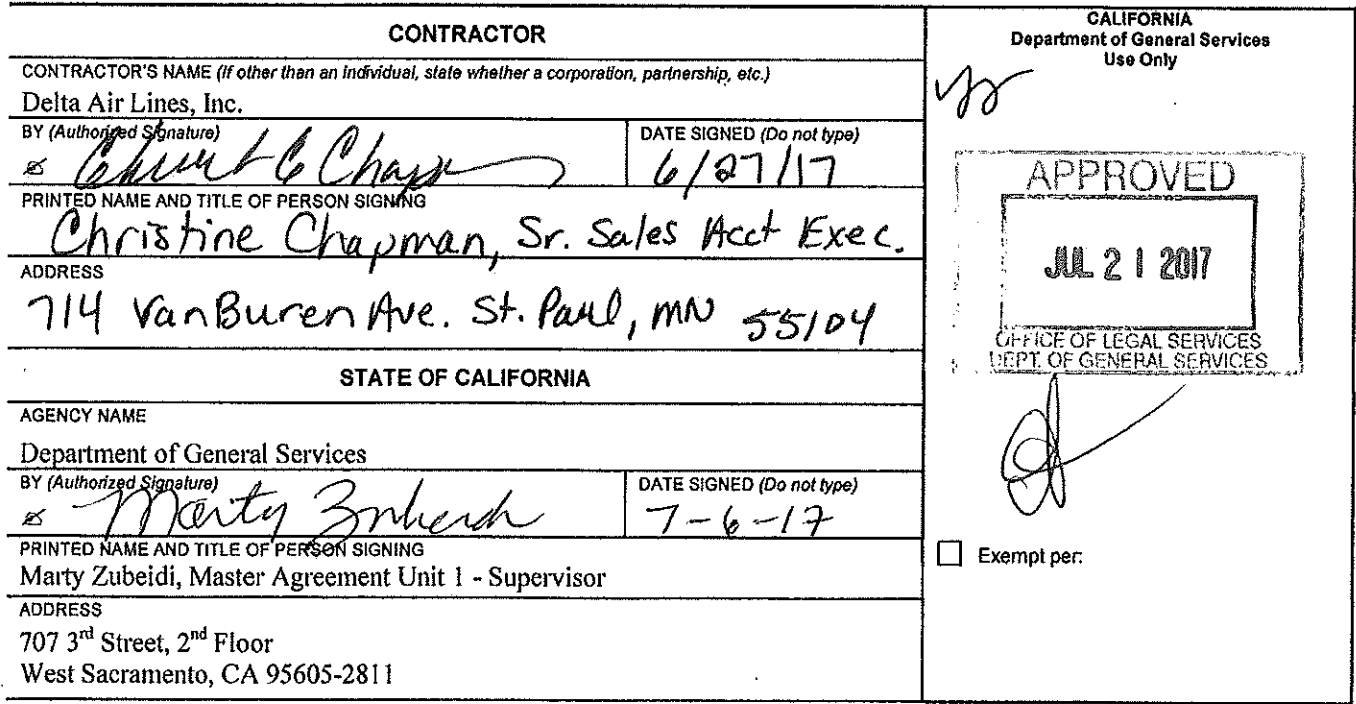 CONTRACTOR
CONTRACTOR'S NAME (If other than an individual, state whether a corporation, partnership, etc.)
Delta Air Lines, Inc.
BY (Authorized Signature)
DATE SIGNED (Do not type)
6/27/17
PRINTED NAME AND TITLE OF PERSON SIGNING
Christine Chapman, Sr. Sales Acct Exec.
ADDRESS
714 Van Buren Ave. St. Paul, MN 55104
STATE OF CALIFORNIA
AGENCY NAME
Department of General Services
BY (Authorized Signature)
Marty
DATE SIGNED (Do not type)
7-6-17
PRINTED NAME AND TITLE OF PERSON SIGNING
Marty Zubeidi, Master Agreement Unit 1 - Supervisor
ADDRESS
707 3rd Street, 2nd Floor
West Sacramento, CA 95605-2811
CALIFORNIA
Department of General Services
Use Only
APPROVED
JUL 21 2017
OFFICE OF LEGAL SERVICES
DEPT. OF GENERAL SERVICES
Exempt per: